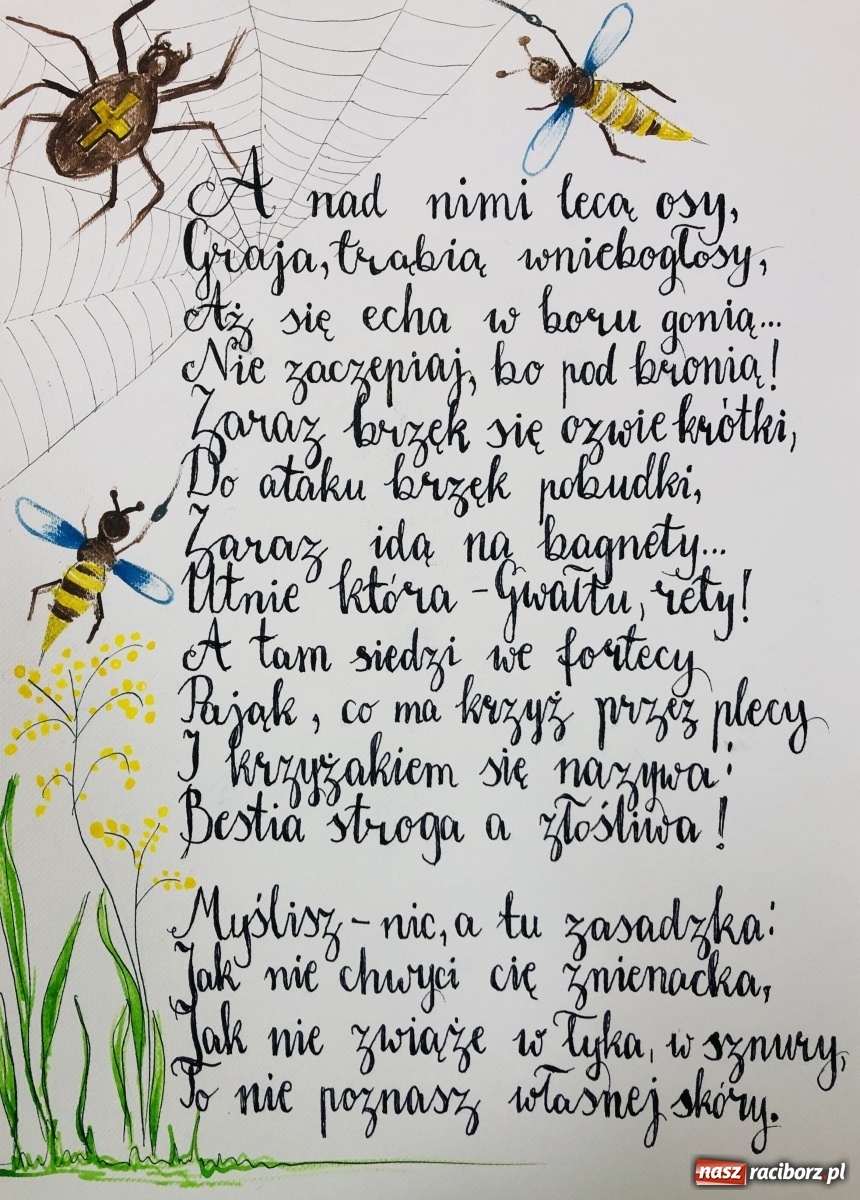 A nad nimi lecą osy,
Graja, trąbią wniebogłosy,
Aż się echa w boru gonią...
Nie zaczepiaj, bo pod bronią!
Zaraz brzęk się ozwie krótki,
Do ataku brzęk pobudki,
Zaraz idą na bagnety...
Utnie która - Gwałtu, rety!
A tam siedzi we fortecy
Pająk, co ma krzyż przez plecy
I krzyżakiem się nazywa:
Bestia stroga a złośliwa!
Myślisz - nic, a tu zasadzka:
Jak nie chwyci cię znienacka,
Jak nie zwiąże w łyka, w sznury,
To nie poznasz własnej skóry.
nasz raciborz.pl